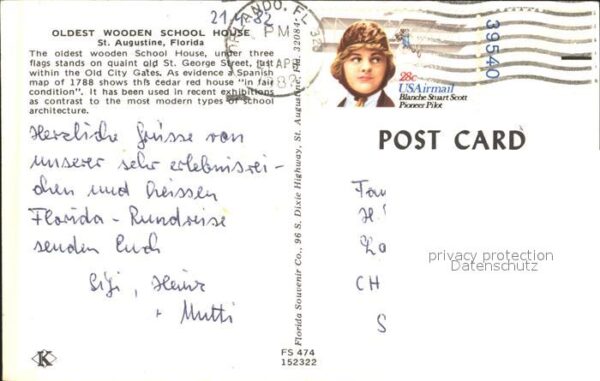 21.4.82
OLDEST WOODEN SCHOOL HOUSE
St. Augustine, Florida
The oldest wooden school house, under three
flags stands on quaint old St. George Street, just
within the Old City Gates. As evidence a Spanish
map of 1788 shows this cedar red house "in fair
condition". It has been used in recent exhibitions
as contrast to the most modern types of school
architecture.
Herzliche Grüsse von
unserer sehr erlebnisrei-
chen und heissen
Florida-Rundreise
senden Euch
Sigi, Heinz
+ Mutti
K
Florida Souvenir Co., 96 S. Dixie Highway, St. Augustine, Fla. 32084
FS 474
152322
ORLANDO, FL
PM
21 APR
28c
USAirmail
Blanche Stuart Scott
Pioneer Pilot
39540
POST CARD
Fam
H.
CH
S
privacy protection
Datenschutz